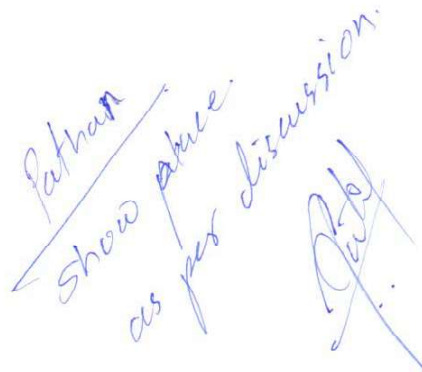 Pathan
show place.
as per discussion.